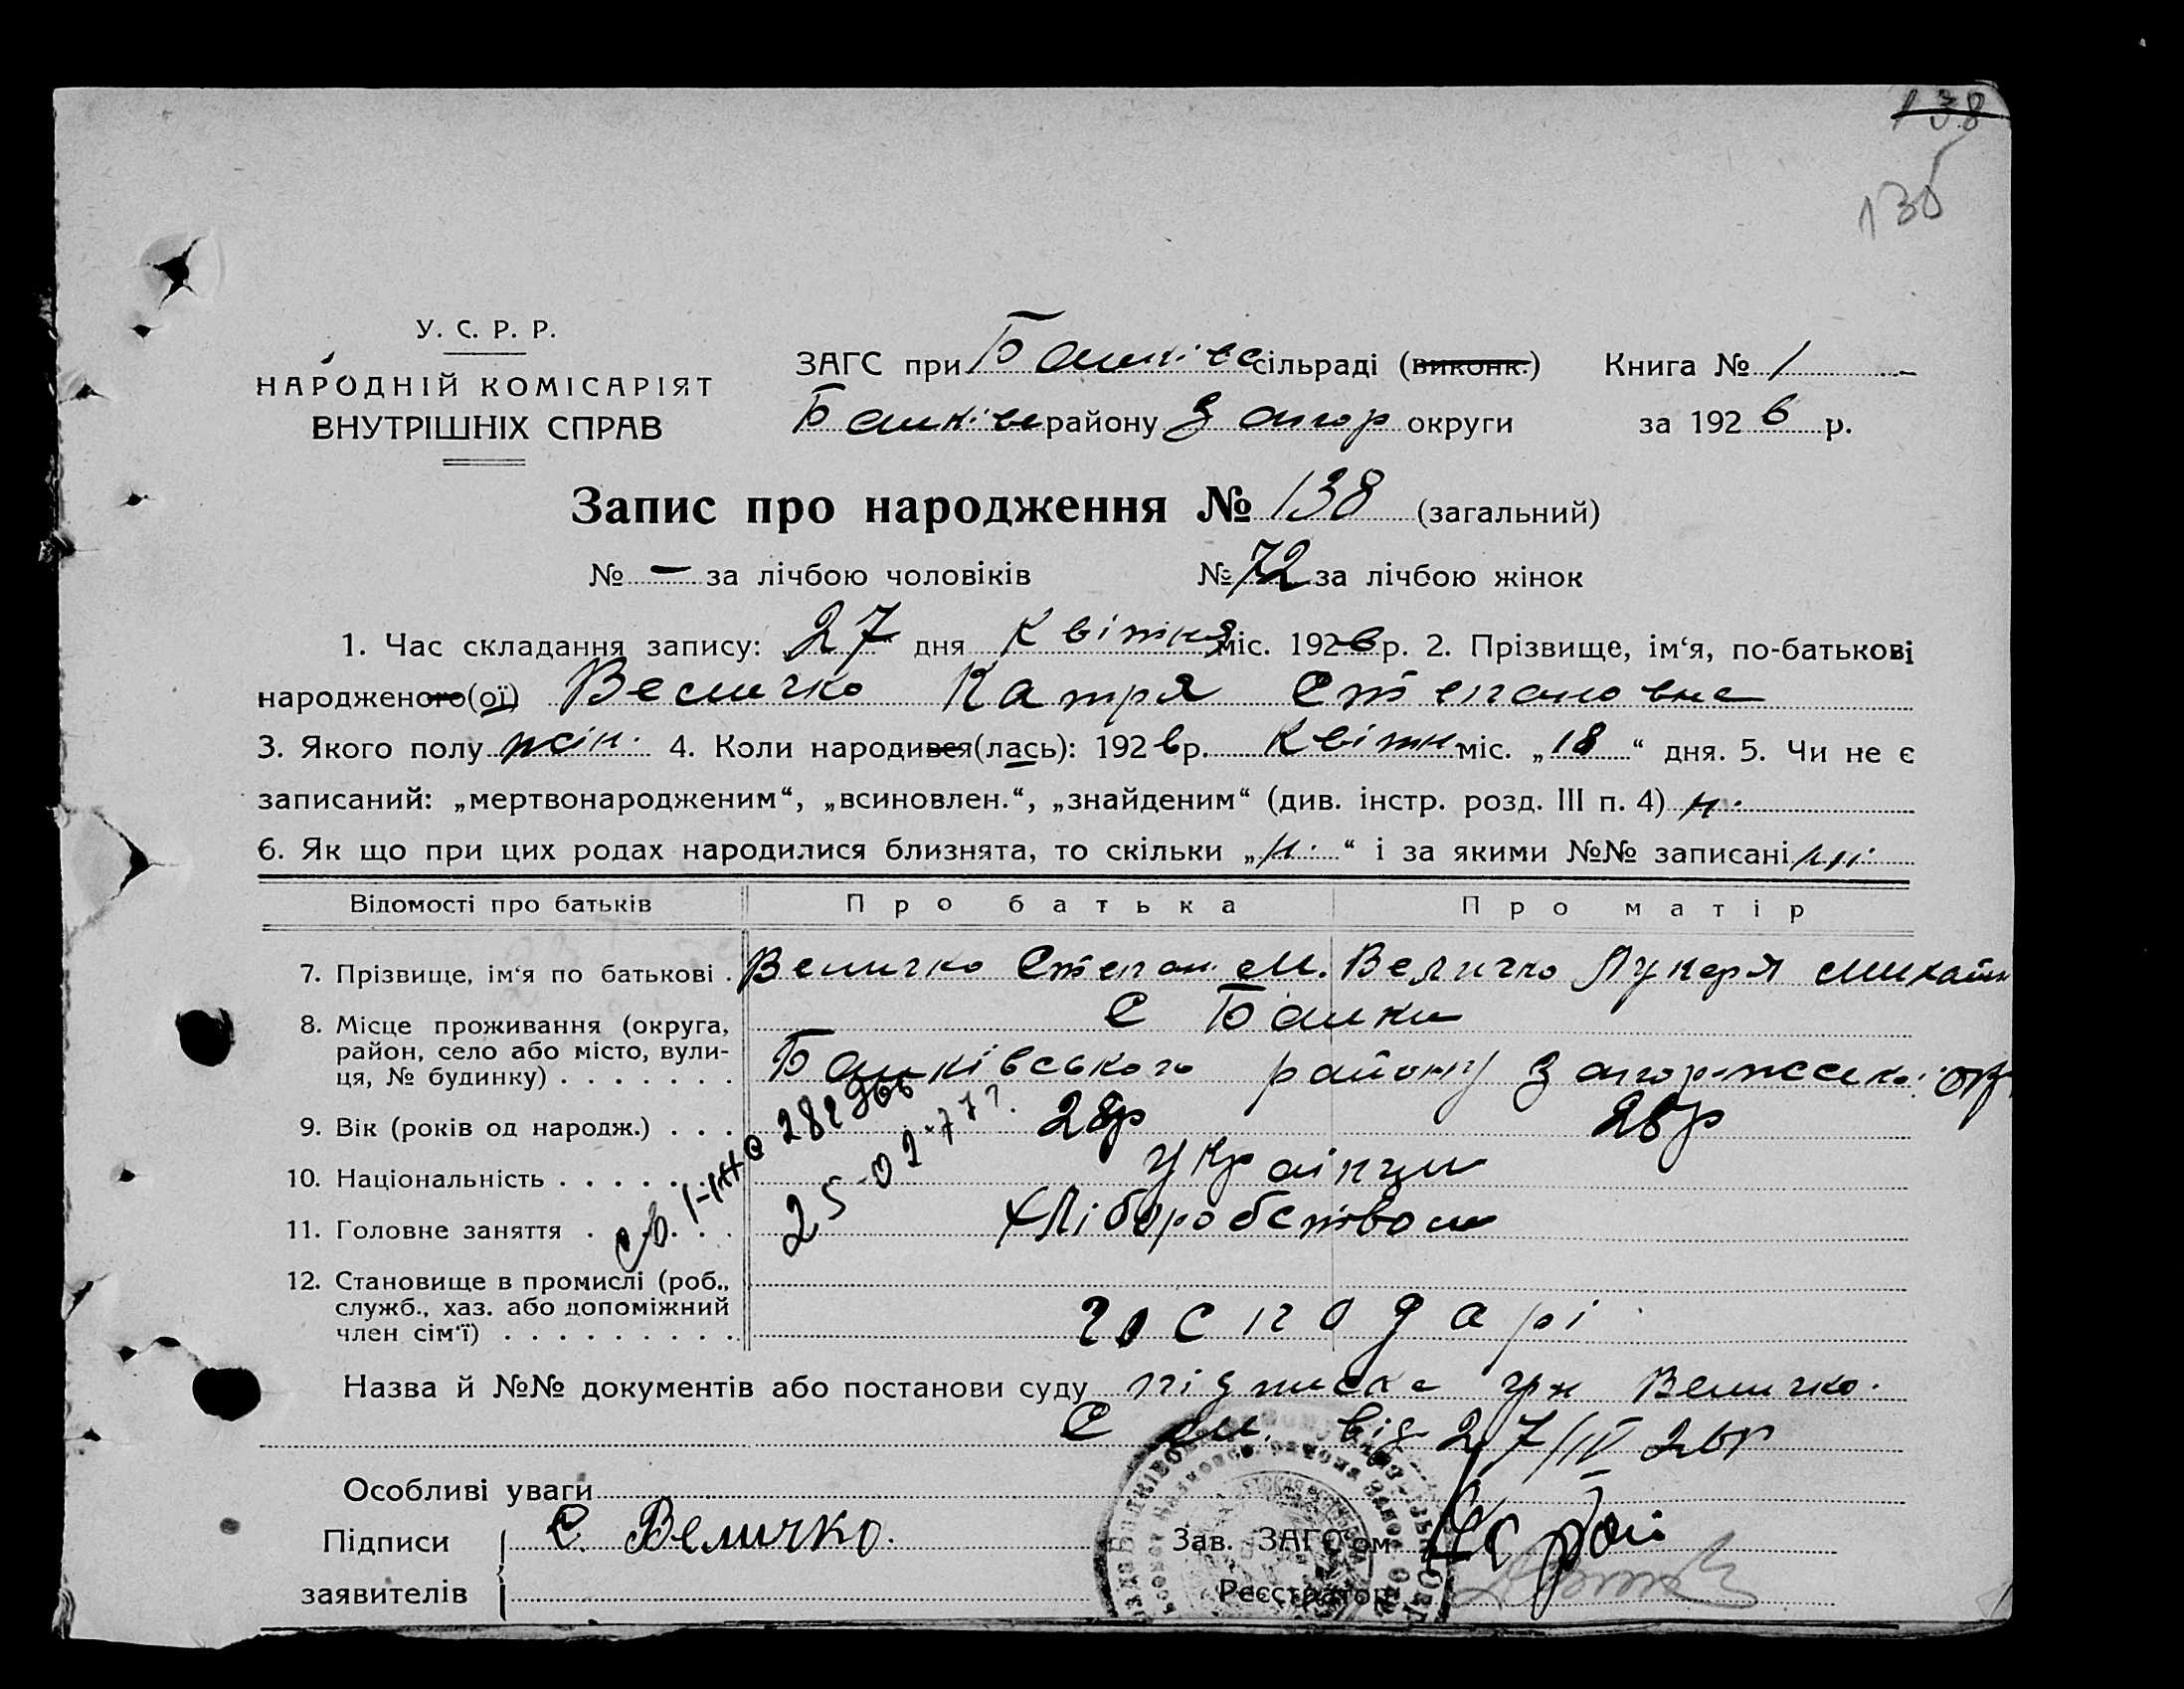 138
135
У. С. Р. Р.
НАРОДНІЙ КОМІСАРІЯТ
ВНУТРІШНІХ СПРАВ
ЗАГС при Балківс сільраді (виконк.) Книга № 1
Балків району Запор округи за 1926 р.
Запис про народження № 138 (загальний)
№ — за лічбою чоловіків № 72 за лічбою жінок
1. Час складання запису: 27 дня Квітня міс. 1926 р. 2. Прізвище, ім‘я, по-батькові
народженого(ої) Величко Катря Степановна
3. Якого полу жін. 4. Коли народився(лась): 1926 р. Квітн міс. „18“ дня. 5. Чи не є
записаний: „мертвонародженим“, „всиновлен.“, „знайденим“ (див. інстр. розд. III п. 4) н.
6. Як що при цих родах народилися близнята, то скільки „н.“ і за якими №№ записані
Відомості про батьків Про батька Про матір
7. Прізвище, ім‘я по батькові . Величко Степан М. Величко Лукеря Михайл
8. Місце проживання (округа, С Балки
район, село або місто, вули-
ця, № будинку) . . . . . . . Балківського району Запоріжсько. окр
9. Вік (років од народж.) . . . 28р 28р
10. Національність . . . . . Українци
11. Головне заняття . . . . Хліборобством
св. І-ЖС 282366
25-02-77г.
12. Становище в промислі (роб.,
служб., хаз. або допоміжний
член сім‘ї) . . . . . . . . . господарі
Назва й №№ документів або постанови суду підписка гр Величко.
С М. від 27/IV 26р
Особливі уваги
Підписи С. Величко. Зав. ЗАГС‘ом
заявителів Реєстратор